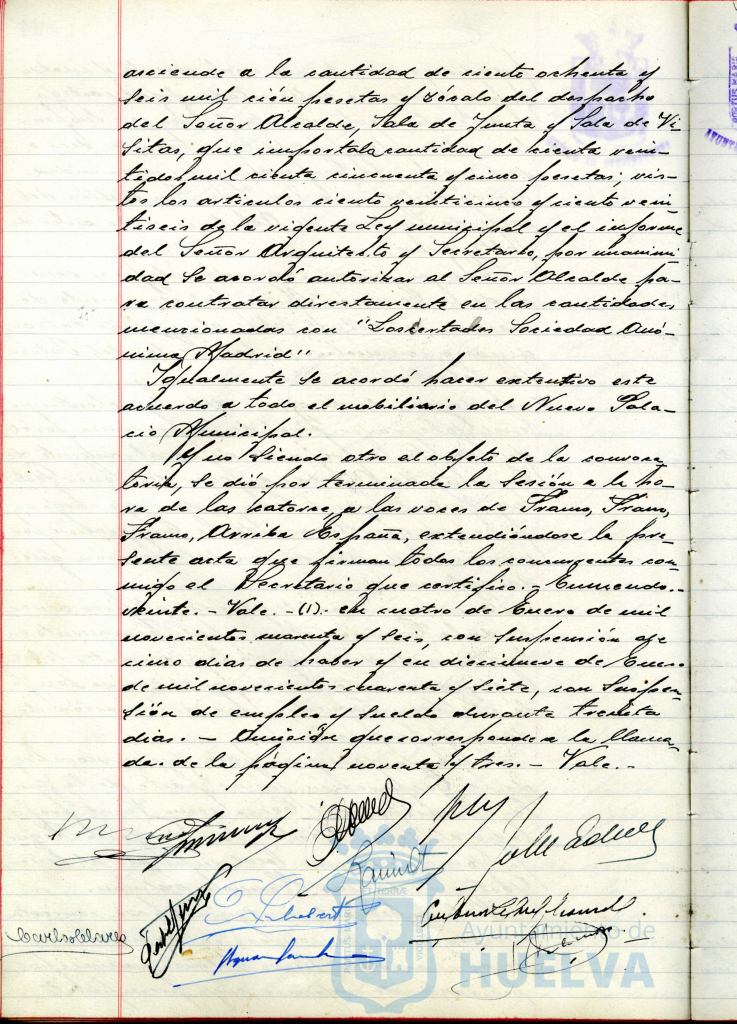 asciende a la cantidad de ciento ochenta y
seis mil cién pesetas y zócalo del despacho
del Señor Alcalde, Sala de Junta y Sala de Vi-
sitas, que importala cantidad de cienta vein-
tidos mil cienta cincuenta y cinco pesetas; vis-
tos los articulos ciento veinticinco y ciento vein-
tiseis de la vigente Ley municipal y el informe
del Señor Arquitecto y Secretario, por unanimi-
dad se acordó autorizar al Señor Alcalde pa-
ra contratar directamente en las cantidades
mencionadas con "Loscertales Sociedad Anó-
nima Madrid"
Igualmente se acordó hacer extentivo este
acuerdo a todo el mobiliario del Nuevo Pala-
cio Municipal.
Y no siendo otro el objeto de la convoca-
toria, se dió por terminada la sesión a la ho-
ra de las catorce, a las voces de Franco, Franco,
Franco, Arriba España, extendiéndose la pre-
sente acta que firman todos los concurrentes con-
migo el Secretario que certifico.- Enmendo.-
veinte.- Vale.-(1).- en cuatro de Enero de mil
novecientos cuarenta y seis, con suspensión de
cinco dias de haber y en diecinueve de Enero
de mil novecientos cuarenta y siete, con suspen-
sión de empleo y sueldo durante treinta
dias.- Omisión que corresponde a la llama-
da de la página noventa y tres.- Vale.-
Ayuntamiento de
HUELVA